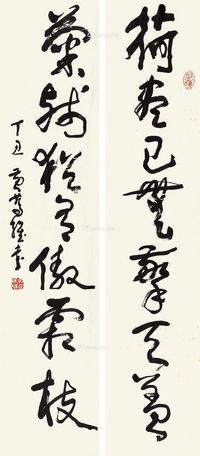 荷盡已無擎天蓋
菊殘猶有傲霜枝
丁丑 黃篤維書